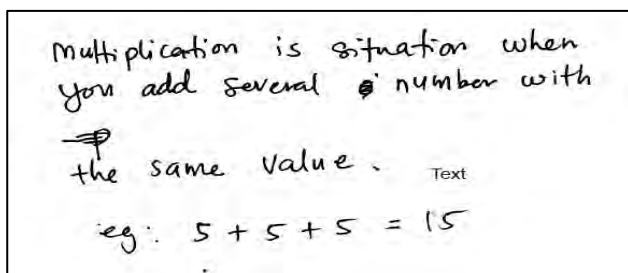 multiplication is situation when
you add several number with
the same value.
Text
eg: 5 + 5 + 5 = 15